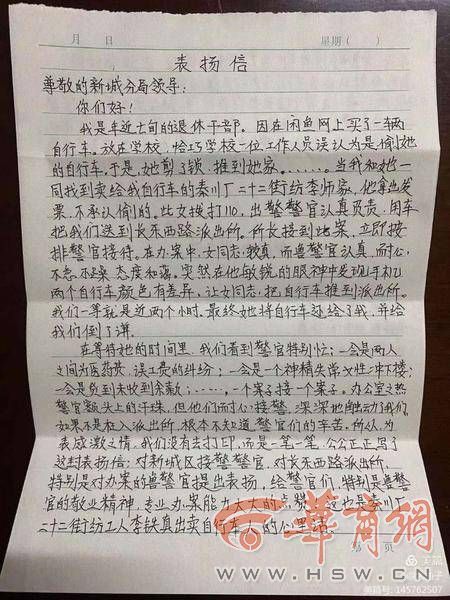 月 日 星期( )
表扬信
尊敬的新城分局领导:
你们好!
我是年近七旬的退休干部。因在闲鱼网上买了一辆两
自行车。放在学校,恰巧学校一位工作人员误认为是偷她
的自行车,于是,她剪了锁,推到她家。……当我和她一
同找到卖给我自行车的秦川厂二十二街坊李师家,他拿出发
票,不承认偷的。此女拨打110,出警警官认真负责,用车
把我们送到长东西路派出所。所长接到此案,立即按
排警官接待。在办案中,女同志较真,而曾警官认真,耐心,
不急不躁,态度和蔼。突然在他敏锐的眼神中发现手机
两个自行车颜色有差异,让女同志把自行车推到派出所。
我们一等就是近两个小时。最终她将自行车还给了我,并给
我们倒了谦。
在等待她的时间里,我们看到警官特别忙:一会是两人
之间为医药费、误工费的纠纷;一会是一个神精失常女性冲下楼;
一会是货到未收到余款;……,一个案子接一个案子。办公室之热
警官额头上的汗珠,但他们耐心接警,深深地触动了我们。
如果不是在入派出所,根本不知道警官们的辛苦。所以,为
表感激之情,我们没有去打印,而是一笔一笔,公公正正写了
这封表扬信:对新城区接警警官,对长东西路派出所,
特别是对办案的曾警官提出表扬,给警官们,特别是曾警
官的敬业精神,专业办案能力大大的点赞。这也是秦川厂
二十二街坊工人李铁真出卖自行车人的心里话
第 页
华商网
WWW.HSW.CN
美篇号:145762507